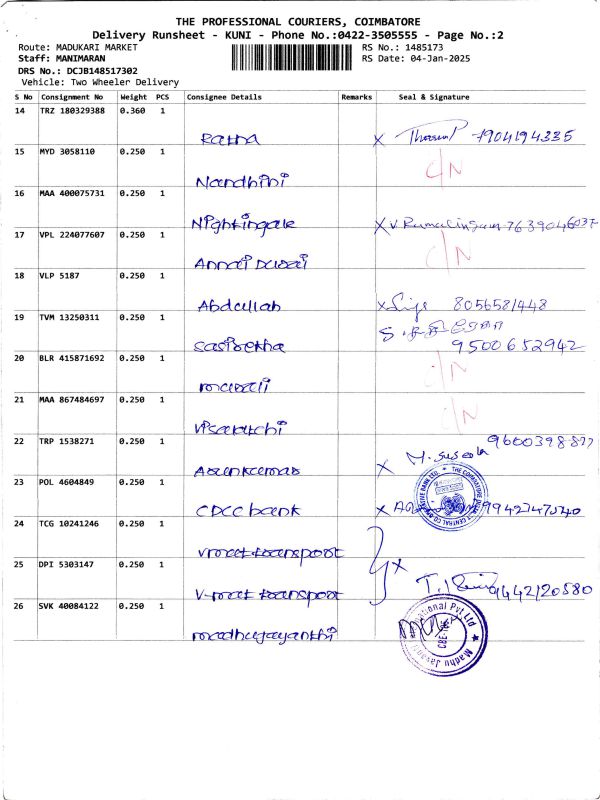 THE PROFESSIONAL COURIERS, COIMBATORE
Delivery Runsheet - KUNI - Phone No.:0422-3505555 - Page No.:2
Route: MADUKARI MARKET
RS No.: 1485173
Staff: MANIMARAN
RS Date: 04-Jan-2025
DRS No.: DCJB148517302
Vehicle: Two Wheeler Delivery
S No Consignment No Weight PCS Consignee Details Remarks Seal & Signature
14 TRZ 180329388 0.360 1
Ratna X 7904194335
15 MYD 3058110 0.250 1
Nandhini C/N
16 MAA 400075731 0.250 1
Nightingale X V Ramalingam 7639046037
17 VPL 224077607 0.250 1
Annai C/N
18 VLP 5187 0.250 1
Abdullah X 8056581448
19 TVM 13250311 0.250 1
9500652942
20 BLR 415871692 0.250 1
C/N
21 MAA 867484697 0.250 1
C/N
22 TRP 1538271 0.250 1
X M. Suseela
23 POL 4604849 0.250 1
CDCC bank X 9942747540
24 TCG 10241246 0.250 1
V mat transport
25 DPI 5303147 0.250 1
V-mat transport X 9442120580
26 SVK 40084122 0.250 1
madhujayanthi